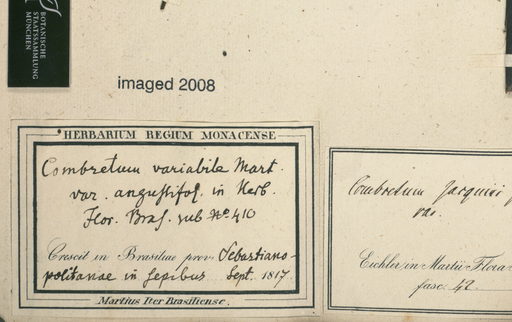 BOTANISCHE
STAATSSAMMLUNG
MÜNCHEN
imaged 2008
HERBARIUM REGIUM MONACENSE
Combretum variabile Mart.
var. angustifol. in Herb.
Flor. Bras. sub No 410
Crescit in Brasiliae prov. Sebastiano-
politanae in sepibus Sept. 1817.
Martius Iter Brasiliense.
Combretum Jacquini
var.
Eichler in Martii Flora
fasc. 42.